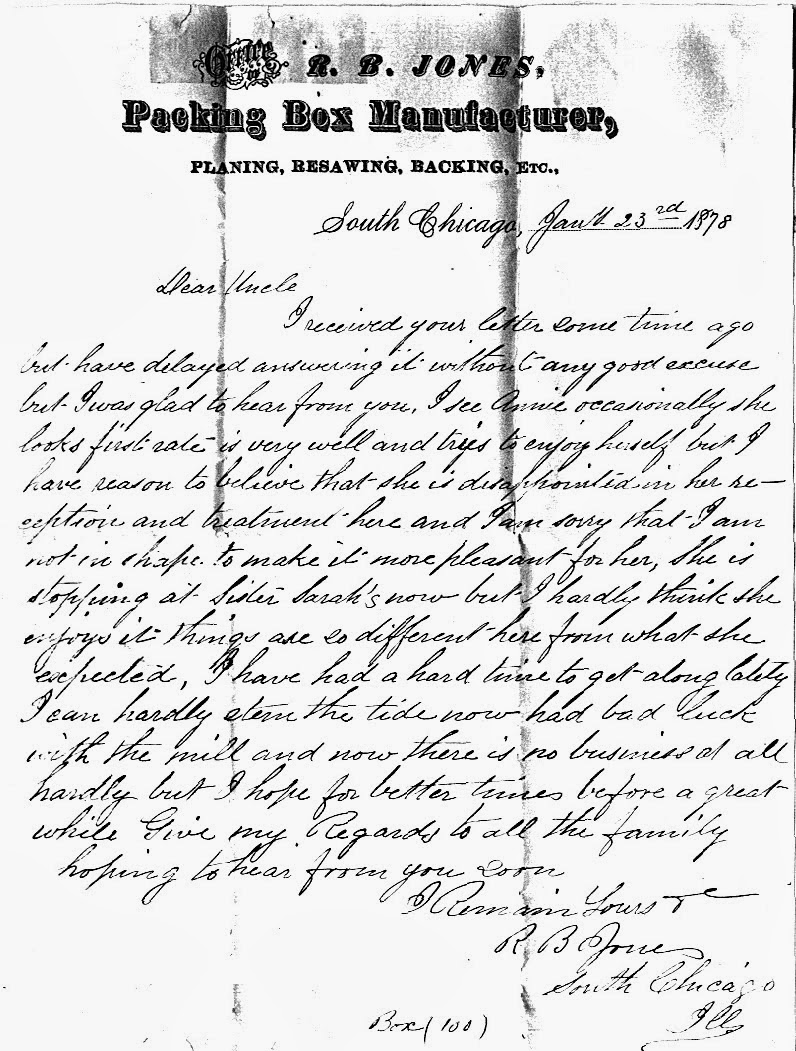 OFFICE OF R. B. JONES,
Packing Box Manufacturer,
PLANING, RESAWING, BACKING, ETC.,
South Chicago, Jany 23rd 1878
Dear Uncle
I received your letter some time ago
but have delayed answering it without any good excuse
but I was glad to hear from you. I see Annie occasionally she
looks first rate is very well and tries to enjoy herself but I
have reason to believe that she is disappointed in her re-
ception and treatment here and I am sorry that I am
not in shape to make it more pleasant for her, She is
stopping at Sister Sarah's now but I hardly think she
enjoys it things are so different here from what she
expected, I have had a hard time to get along lately
I can hardly stem the tide now had bad luck
with the mill and now there is no business at all
hardly but I hope for better times before a great
while Give my Regards to all the family
hoping to hear from you soon
I Remain Yours
R B Jones
South Chicago
Ills
Box (100)